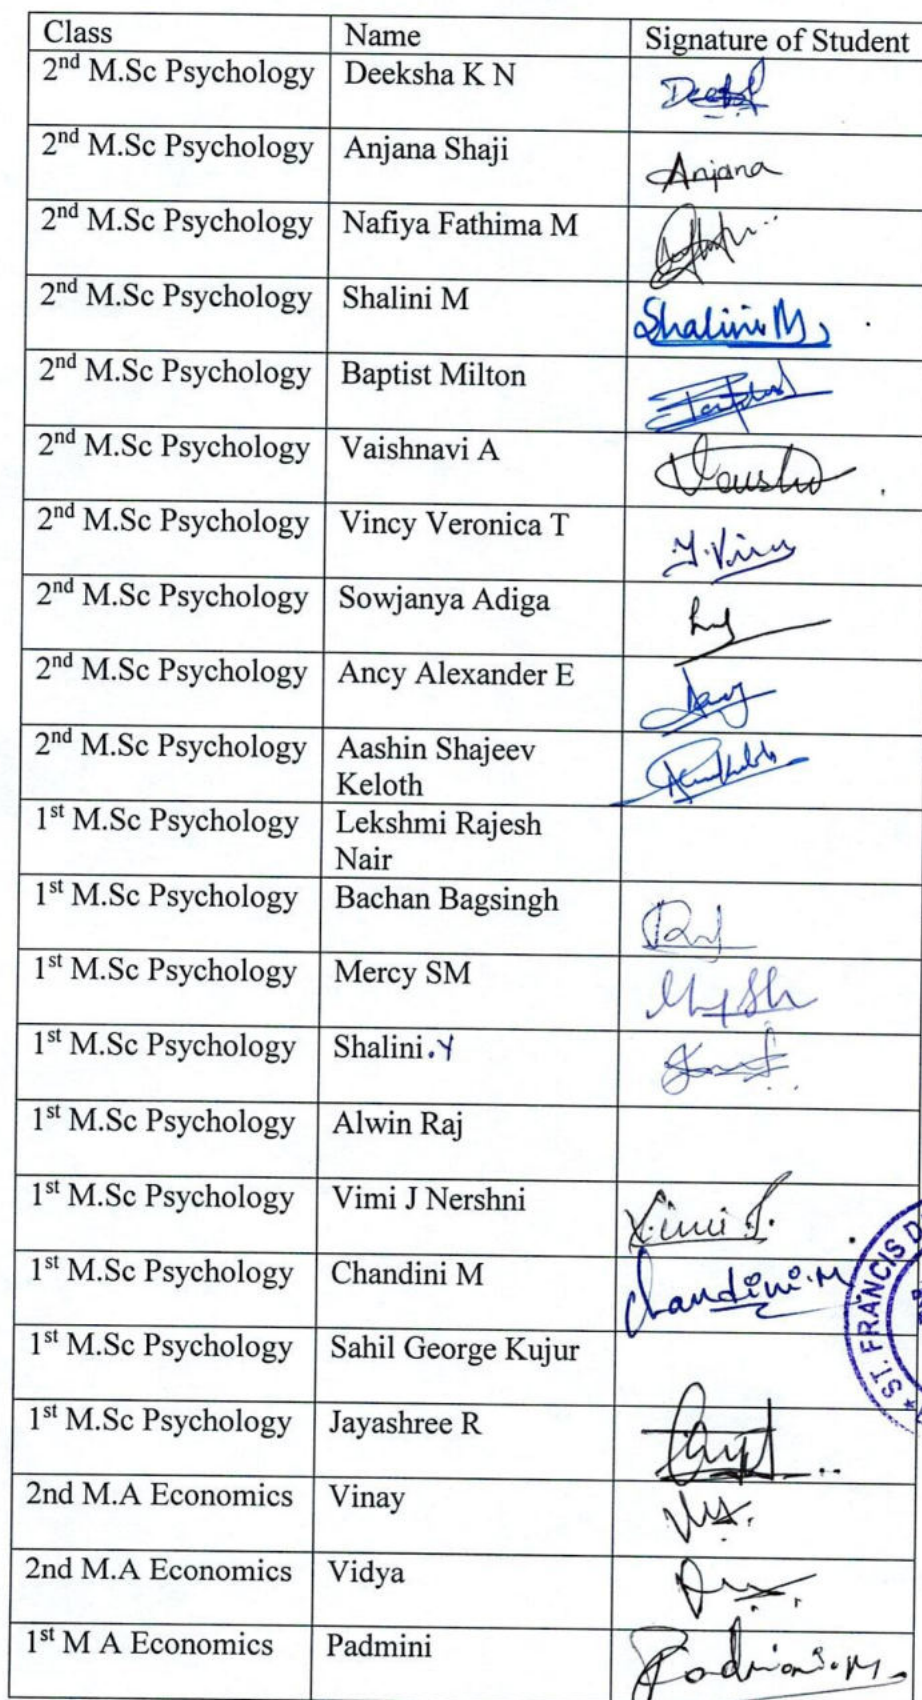 Class Name Signature of Student
2nd M.Sc Psychology Deeksha K N
2nd M.Sc Psychology Anjana Shaji Anjana
2nd M.Sc Psychology Nafiya Fathima M
2nd M.Sc Psychology Shalini M Shalini M
2nd M.Sc Psychology Baptist Milton
2nd M.Sc Psychology Vaishnavi A
2nd M.Sc Psychology Vincy Veronica T
2nd M.Sc Psychology Sowjanya Adiga
2nd M.Sc Psychology Ancy Alexander E
2nd M.Sc Psychology Aashin Shajeev
Keloth
1st M.Sc Psychology Lekshmi Rajesh
Nair
1st M.Sc Psychology Bachan Bagsingh
1st M.Sc Psychology Mercy SM
1st M.Sc Psychology Shalini.Y
1st M.Sc Psychology Alwin Raj
1st M.Sc Psychology Vimi J Nershni Vimi J.
1st M.Sc Psychology Chandini M Chandini.M
ST. FRANCIS D
1st M.Sc Psychology Sahil George Kujur
1st M.Sc Psychology Jayashree R
2nd M.A Economics Vinay
2nd M.A Economics Vidya
1st M A Economics Padmini Padmini.M